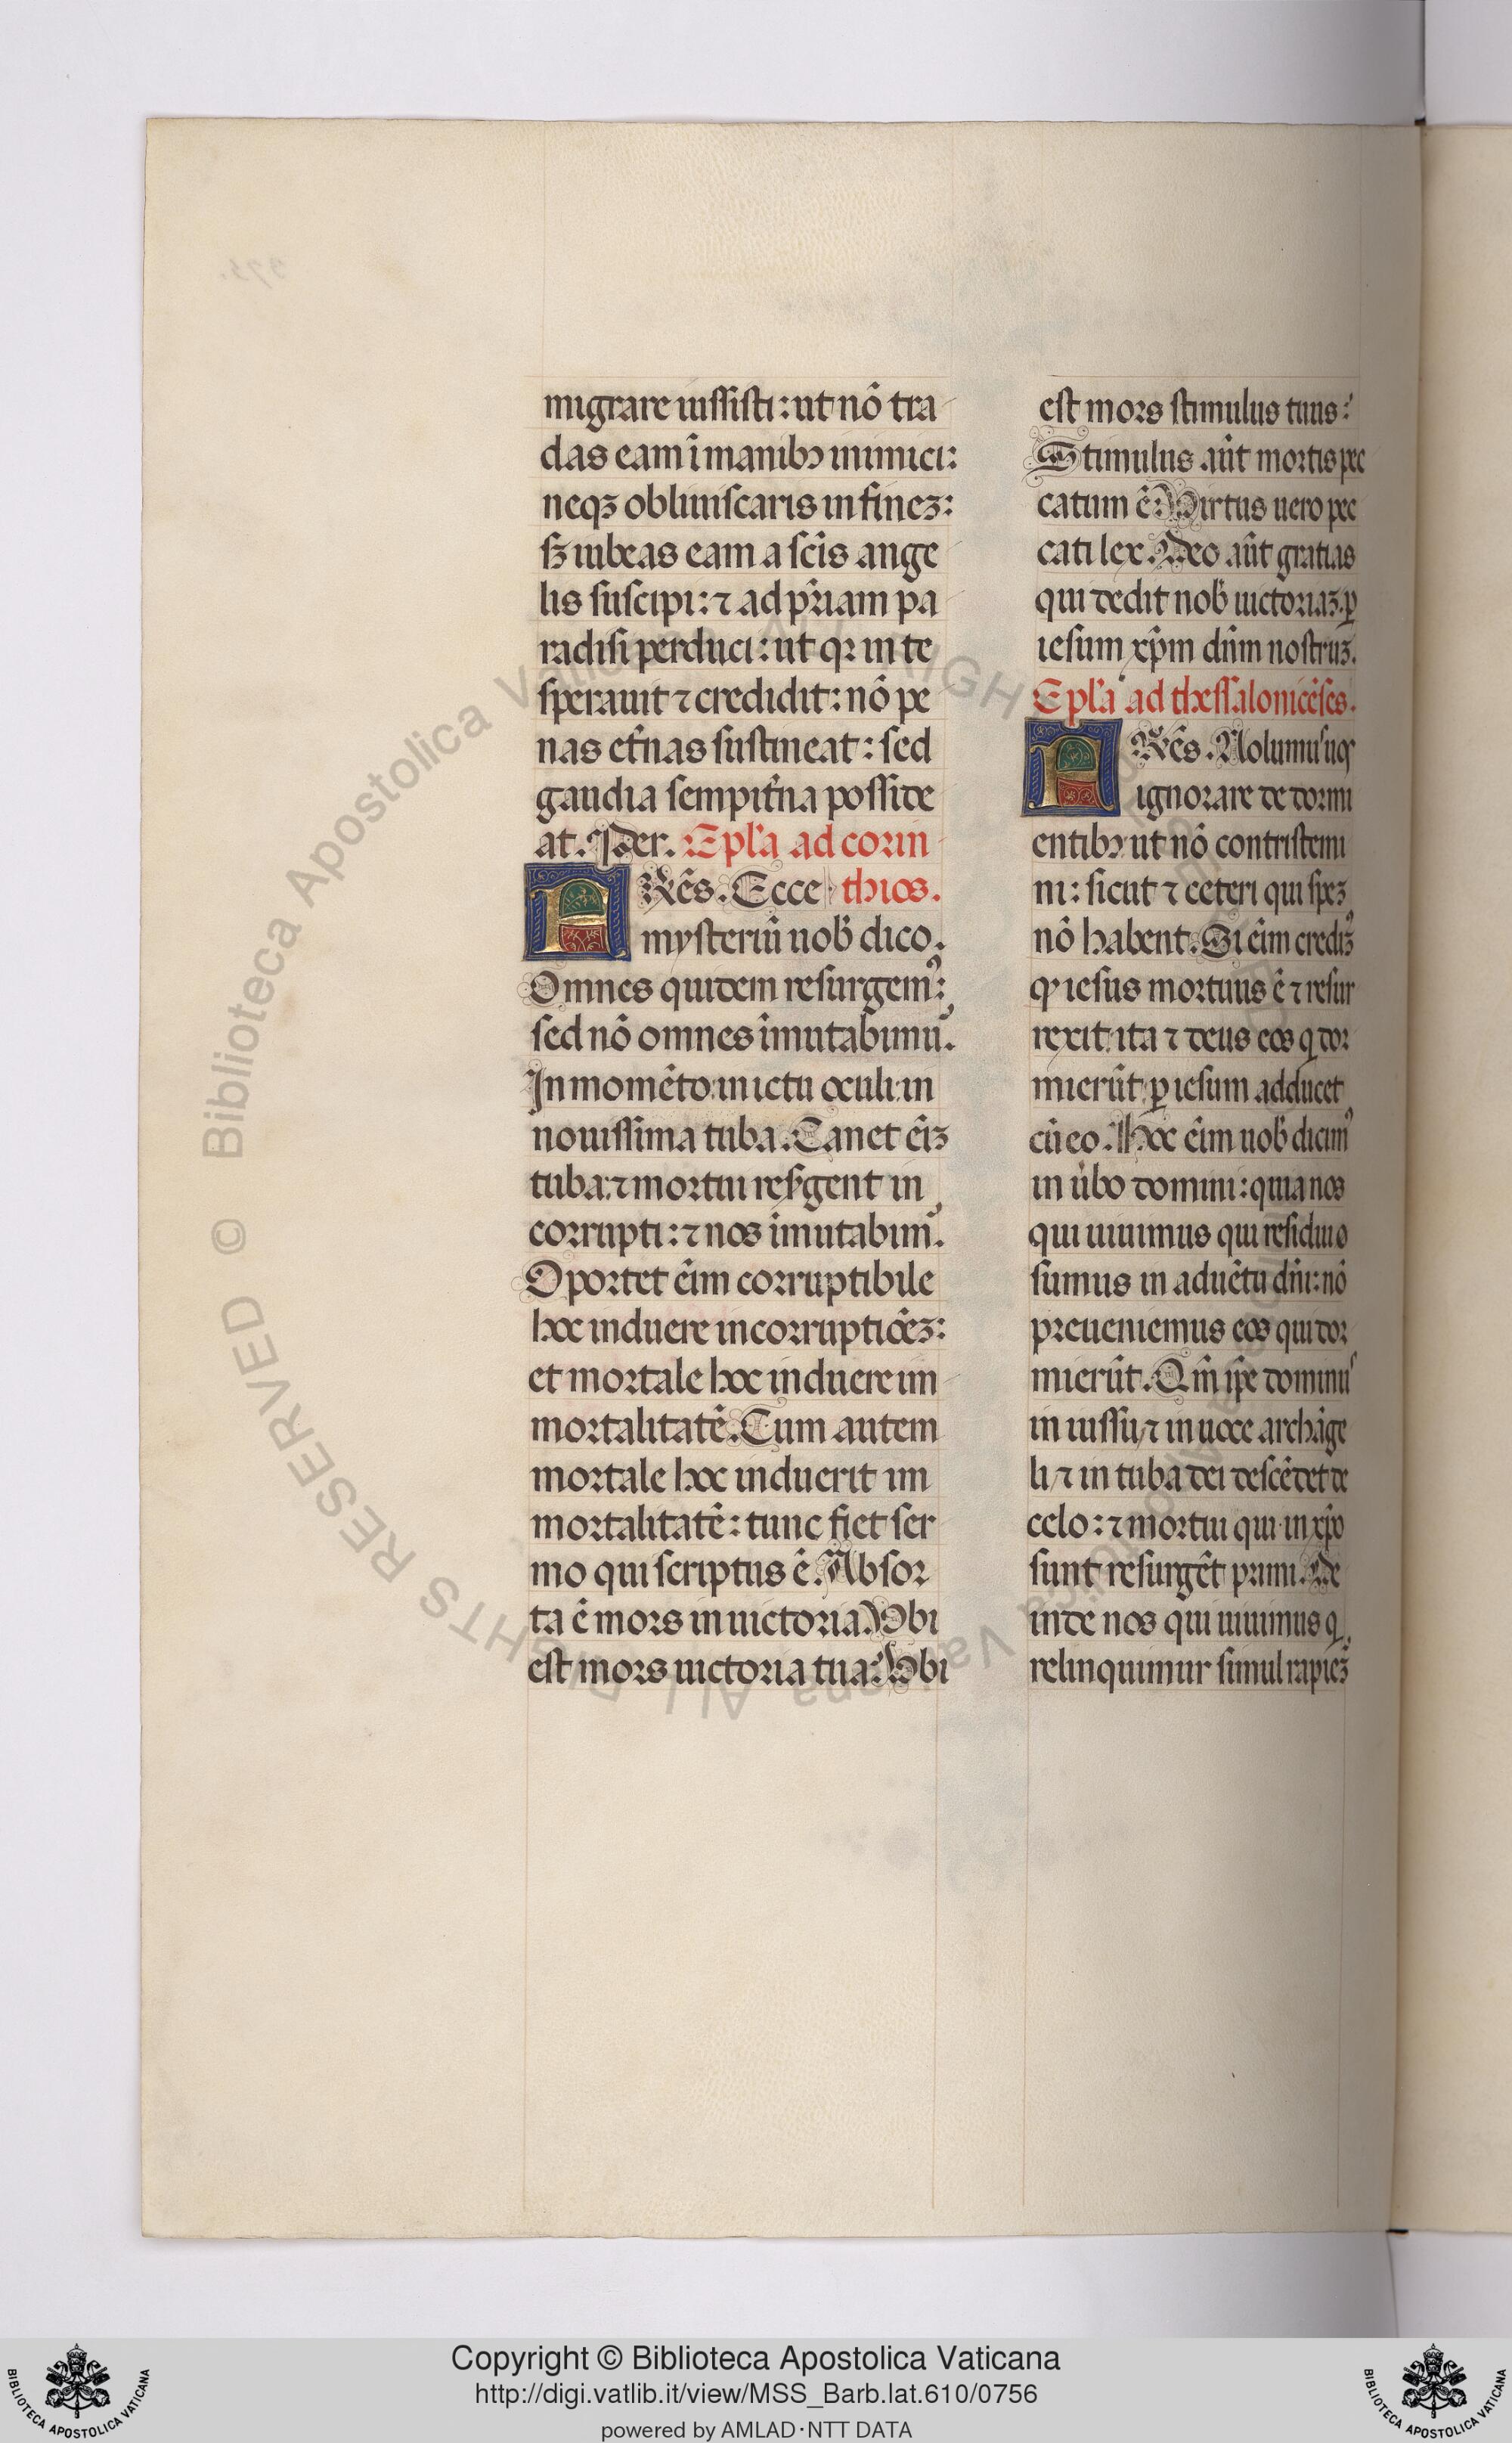 migrare iussisti: ut nō tra
das eam ī manibꝫ inimici:
neqꝫ obliuiscaris in fineꝫ:
sꝫ iubeas eam a scīs ange
lis suscipi: ⁊ ad pr̄iam pa
radisi perduci: ut qꝛ in te
sperauit ⁊ credidit: nō pe
nas et̄nas sustineat: sed
gaudia sempit̄na posside
at. Per. Epl̄a ad corin
FRēs. Ecce thios.
mysteriū uob̄ dico.
Omnes quidem resurgemꝰ:
sed nō omnes īmutabimuˢ.
In momēto in ictu oculi in
nouissima tuba. Canet eīꝫ
tuba: ⁊ mortui resᷣgent in
corrupti: ⁊ nos īmutabimꝰ.
Oportet eīm corruptibile
hoc induere incorruptiōeꝫ:
et mortale hoc induere im
mortalitatē. Cum autem
mortale hoc induerit im
mortalitatē: tunc fiet ser
mo qui scriptus ē. Absor
ta ē mors in uictoria. Vbi
est mors uictoria tua: Vbi
est mors stimulus tuus:
Stimulus aūt mortis pec
catum ē: Virtus uero pec
cati lex. Deo aūt gratias
qui dedit nob̄ uictoriaꝫ ꝑ
iesum xp̄m dn̄m nostruꝫ.
Epl̄a ad thessalonicēses.
FRēs. Nolumuˢ uoˢ
ignorare de dormi
entibꝫ ut nō contristemi
ni: sicut ⁊ ceteri qui speꝫ
nō habent. Si eīm credimꝰ
ꝙ iesus mortuus ē ⁊ resur
rexit: ita ⁊ deus eos q̄ dor
mierūt ꝑ iesum adducet
cū eo. Hoc eīm uob̄ dicimꝰ
in ūbo domini: quia nos
qui uiuimus qui residui
sumus in aduētu dn̄i: nō
preueniemus eos qui dor
mierūt. Qm̄ ip̄e dominuˢ
in iussu ⁊ in uoce archāge
li ⁊ in tuba dei descēdet de
celo: ⁊ mortui qui in xp̄o
sunt resurgēt primi. De
inde nos qui uiuimus q̄
relinquimur simul rapiemꝰ
Copyright © Biblioteca Apostolica Vaticana
http://digi.vatlib.it/view/MSS_Barb.lat.610/0756
powered by AMLAD·NTT DATA
BIBLIOTECA APOSTOLICA VATICANA
BIBLIOTECA APOSTOLICA VATICANA
© Biblioteca Apostolica Vaticana
ALL RIGHTS RESERVED